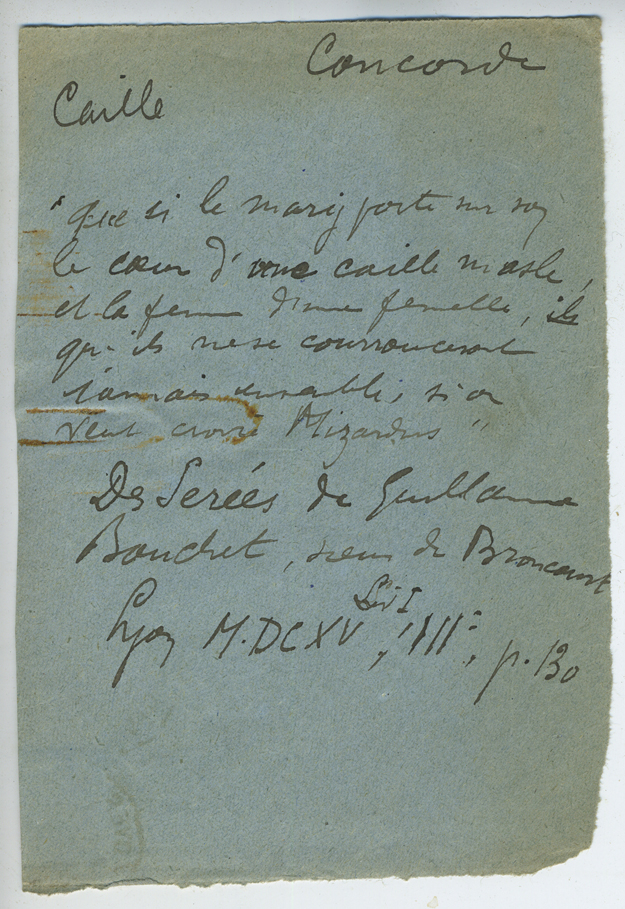 Concorde
Caille
"que si le mary porte sur soy
le cœur d'une caille masle,
et la femme d'une femelle, ils
qu'ils ne se courrouceront
iamais ensemble, si on
veut croire Mizardus"
Des Serées de Guillaume
Bouchet, sieur de Broncourt
Lyon M.DCXV, Liv I, III, p. 130